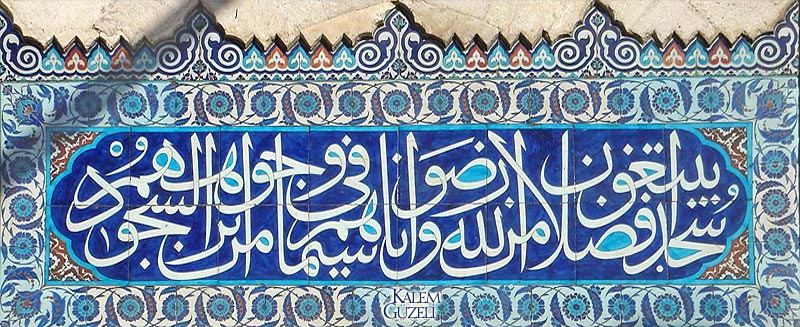 سجدا يبتغون فضلا من الله ورضوانا سيماهم في وجوههم من اثر السجود
KALEM
GÜZELİ